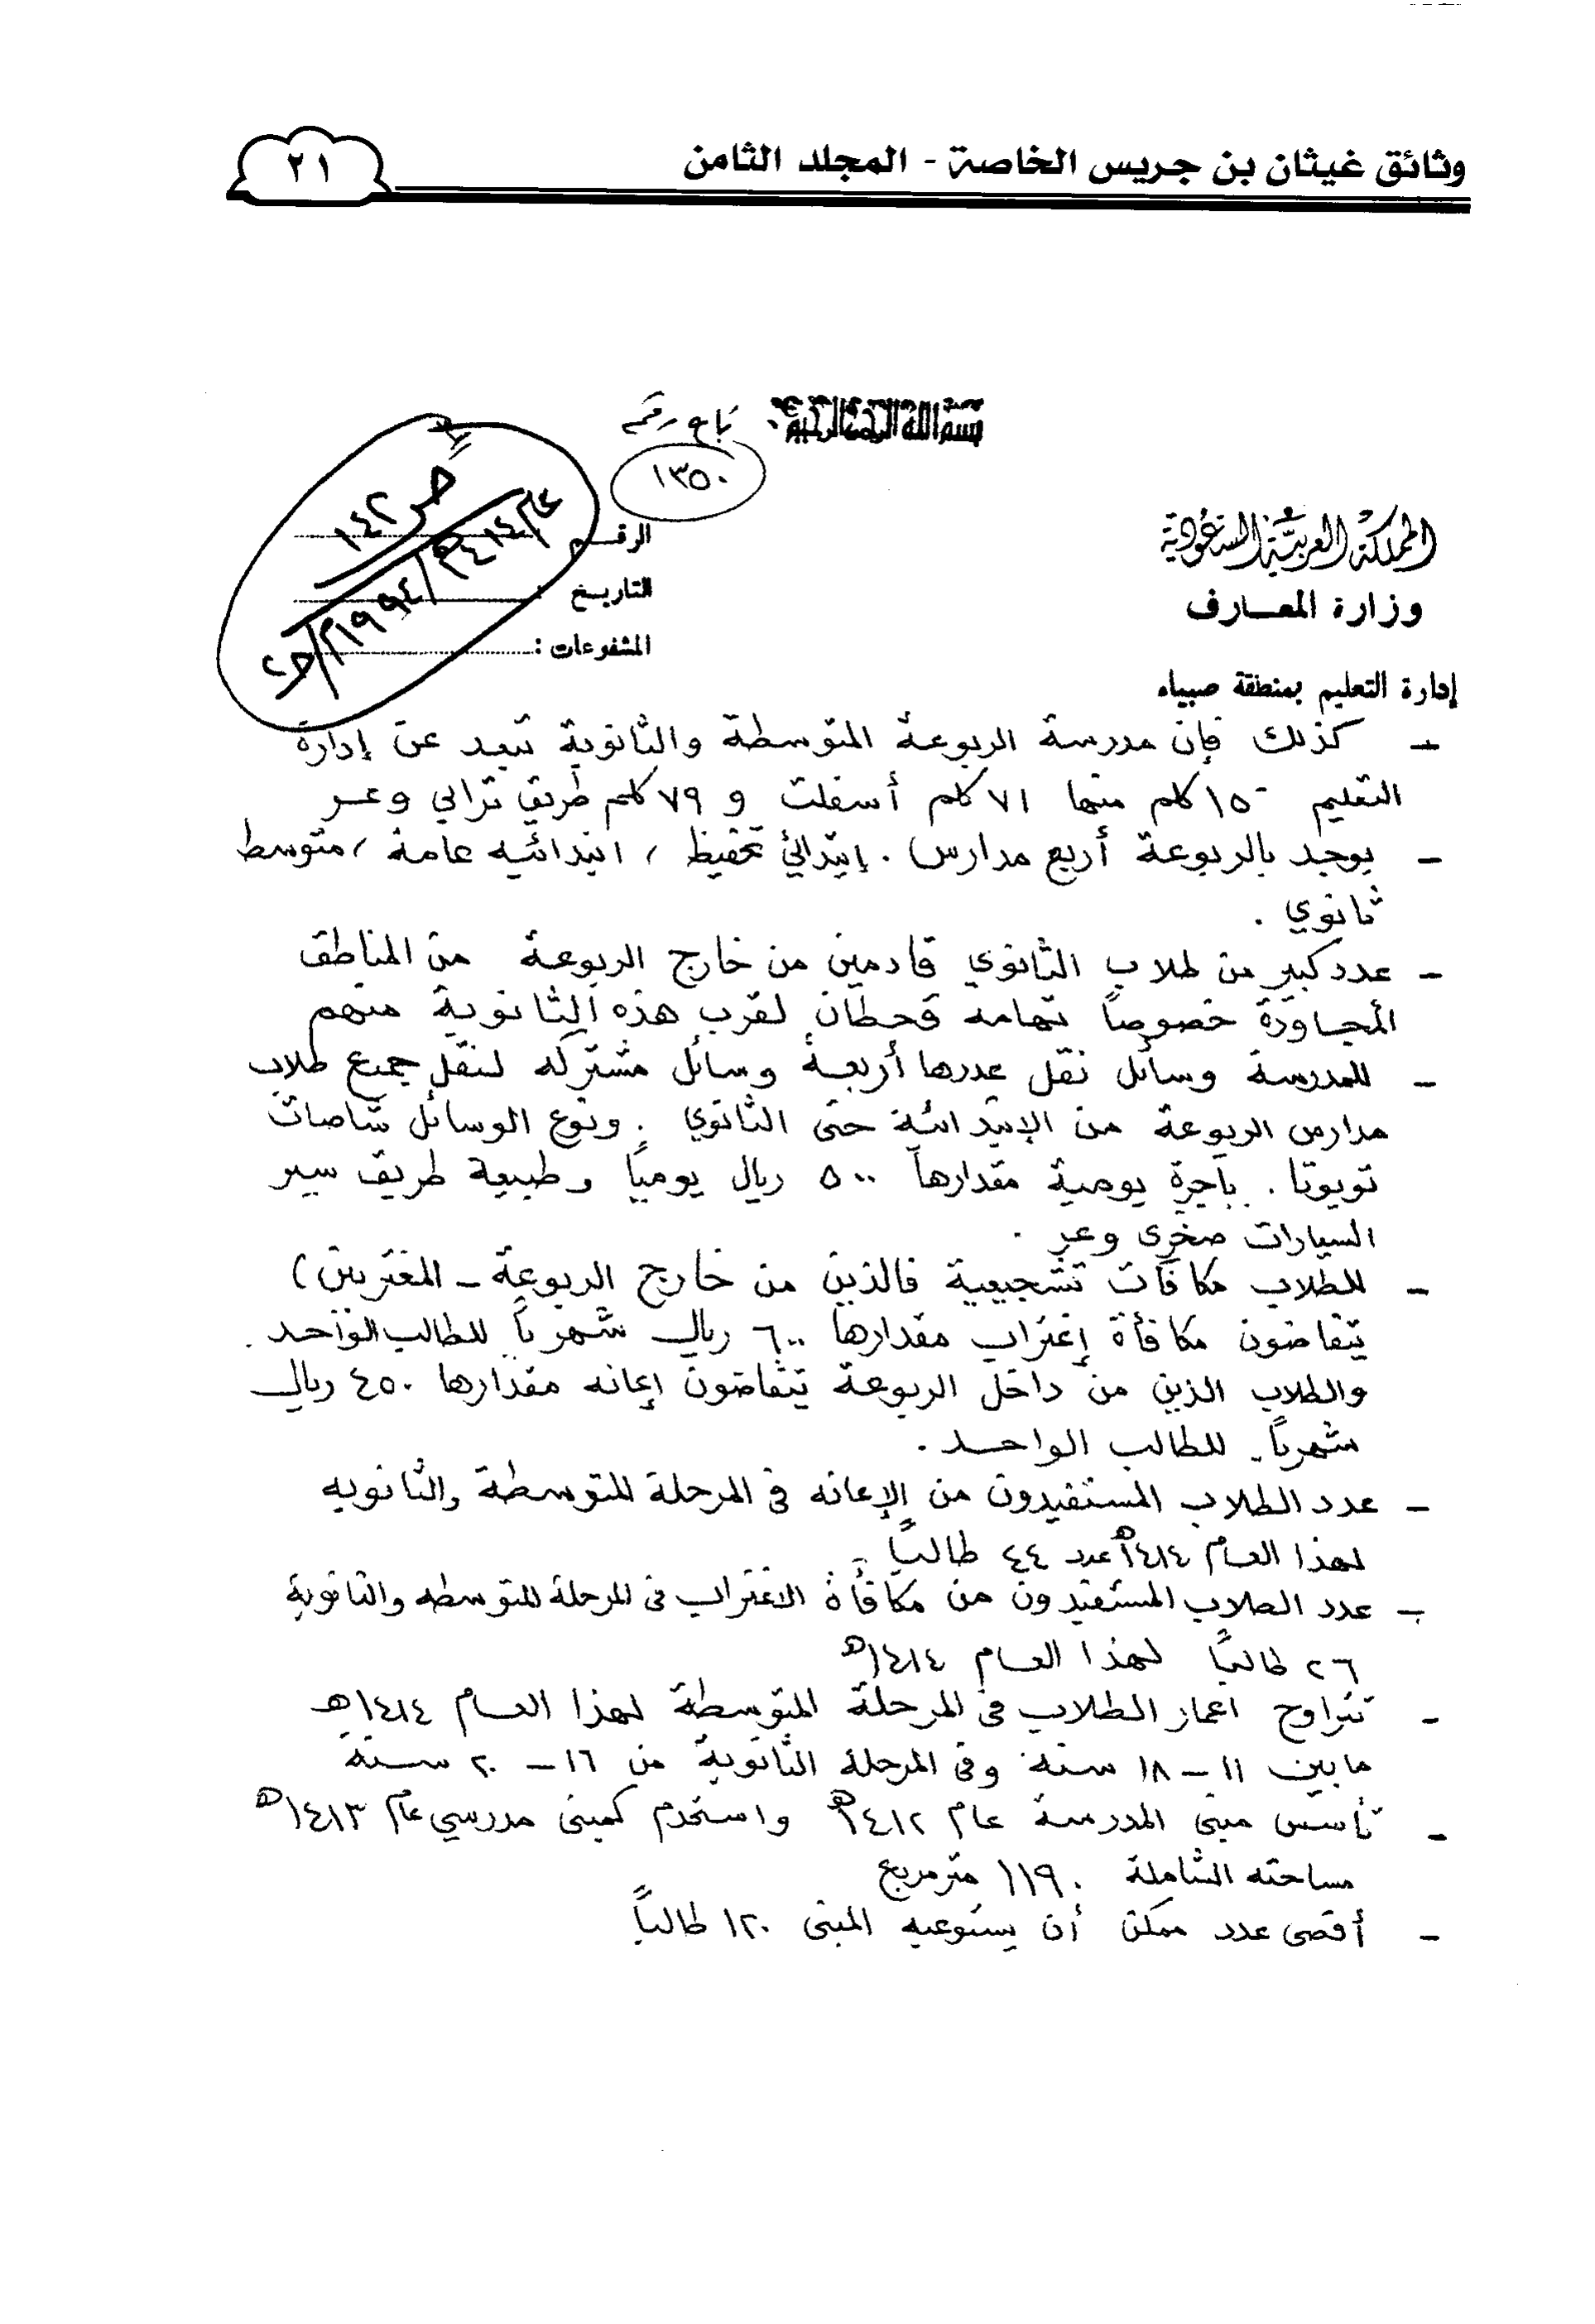 وثائق غيثان بن جريس الخاصة - المجلد الثامن
٢١
بسم الله الرحمن الرحيم
رقم
١٣٥٠
المملكة العربية السعودية
وزارة المعارف
إدارة التعليم بمنطقة صبياء
الرقم
التاريخ
المشفوعات :
ص ١٤٢
عام ١٤١٤هـ / ١٩٩٤م / ص٢
- كذلك فإن مدرسة الربوعة المتوسطة والثانوية تبعد عن إدارة
التعليم ١٥٠ كلم منها ٧١ كلم أسفلت و ٧٩ كلم طريق ترابي وعر
- يوجد بالربوعة أربع مدارس . إبتدائي تحفيظ ، ابتدائيه عامة ، متوسط
ثانوي .
- عدد كبير من طلاب الثانوي قادمين من خارج الربوعة من المناطق
المجاورة خصوصاً تهامه قحطان لقرب هذه الثانوية منهم
- للمدرسة وسائل نقل عددها أربعة وسائل مشتركه لنقل جميع طلاب
مدارس الربوعة من الإبتدائية حتى الثانوي . ونوع الوسائل شاصات
تويوتا . بأجرة يومية مقدارها ٥٠٠ ريال يومياً وطبيعة طريق سير
السيارات صخري وعر .
- للطلاب مكافآت تشجيعية فالذين من خارج الربوعة - المغتربين )
يتقاضون مكافأة إغتراب مقدارها ٦٠٠ ريال شهرياً للطالب الواحد .
والطلاب الذين من داخل الربوعة يتقاضون إعانه مقدارها ٤٥٠ ريال
شهرياً للطالب الواحد .
- عدد الطلاب المستفيدون من الإعانه في المرحلة المتوسطة والثانويه
لهذا العام ١٤١٤هـ عدد ٤٤ طالباً
- عدد الطلاب المستفيدون من مكافأة الاغتراب في المرحلة المتوسطه والثانوية
٢٦ طالباً لهذا العام ١٤١٤هـ
- تتراوح اعمار الطلاب في المرحلة المتوسطة لهذا العام ١٤١٤هـ
مابين ١١ - ١٨ سنة وفي المرحلة الثانوية من ١٦ - ٢٠ سنة
- تأسس مبنى المدرسة عام ١٤١٢هـ واستخدم كمبنى مدرسي عام ١٤١٣هـ
مساحته الشاملة ١١٩٠ مترمربع
- أقصى عدد ممكن أن يستوعبه المبنى ١٢٠ طالباً